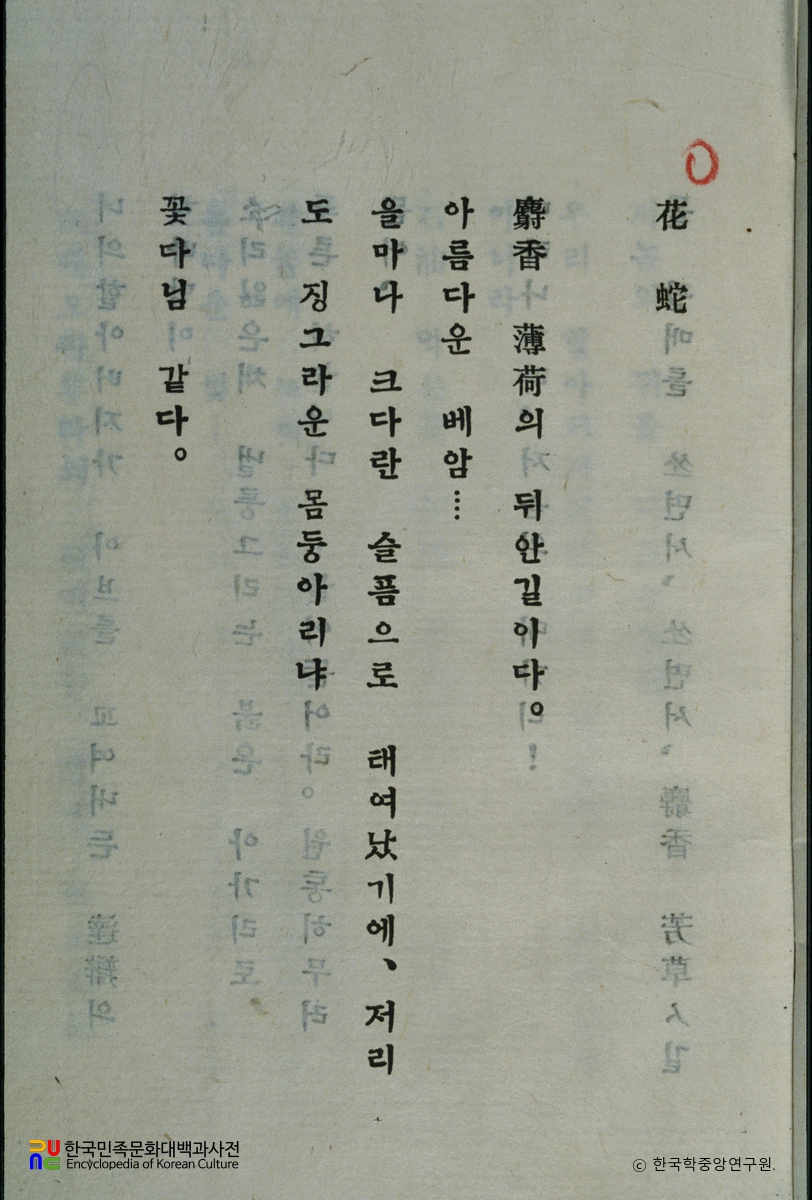 花蛇
麝香 薄荷의 뒤안길이다。
아름다운 베암……
을마나 크다란 슬픔으로 태여났기에、저리
도 징그라운 몸둥아리냐
꽃다님 같다。
한국민족문화대백과사전
Encyclopedia of Korean Culture
ⓒ 한국학중앙연구원.